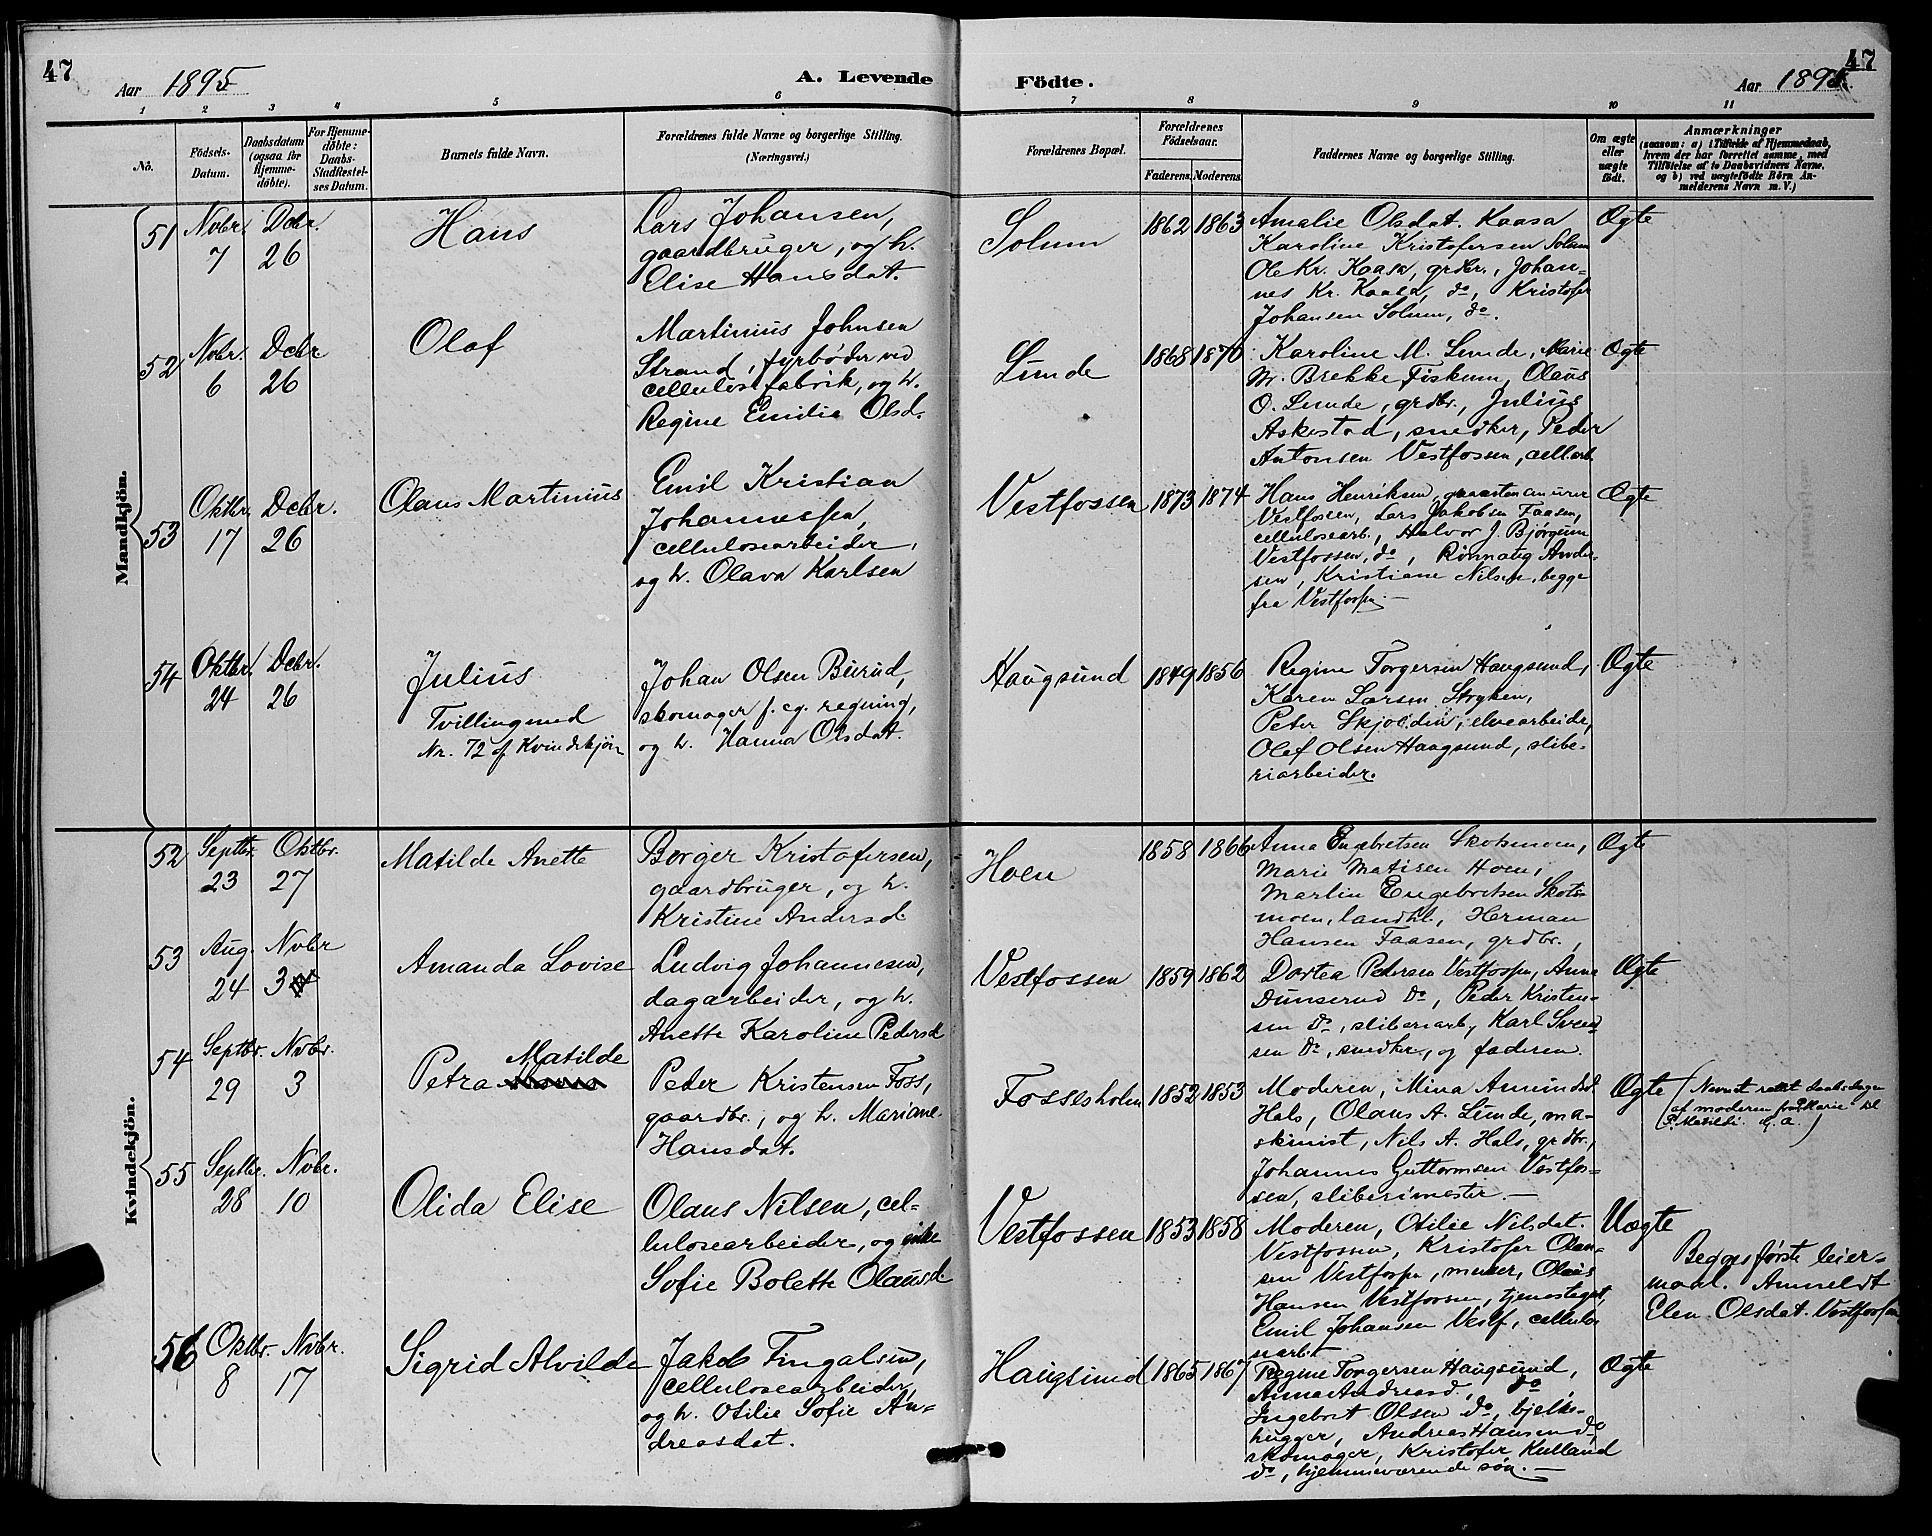 47
Aar 1895
A. Levende
Födte.
Aar 1895.
47
1 2 3 4 5 6 7 8 9 10 11
No.
Födsels-
Datum.
Daabsdatum
(ogsaa for
Hjemme-
döbte).
For Hjemme-
döbte:
Daabs-
Stadfæstel-
ses Datum.
Barnets fulde Navn.
Forældrenes fulde Navne og borgerlige Stilling.
(Næringsvei.)
Forældrenes Bopæl.
Forældrenes
Födselsaar.
Faderens. Moderens.
Faddernes Navne og borgerlige Stilling.
Om ægte
eller
uægte
födt.
Anmærkninger
(saasom: a) i Tilfælde af Hjemmedaab,
hvem der har forrettet samme, med
Tilföielse af to Daabsvidners Navne,
og b) ved uægtefödte Börn An-
melderens Navn m. V.)
Mandkjön.
51
Novbr. 7
Dcbr. 26
Hans
Lars Johansen,
gaardbruger, og h.
Elise Hansdat.
Solum
1862 1863
Amalie Olsdat. Kaasa
Karoline Kristofersen Solum
Ole Kr. Kaasa, grdbr., Johan-
nes Kr. Kaasa, do, Kristofer
Johansen Solum, do.
Ægte
52
Novbr. 6
Dcbr 26
Olaf
Martinius Johnsen
Strand, fyrbøder ved
cellulosefabrik, og h.
Regine Emilie Olsd.
Lunde
1868 1870
Karoline M. Lunde, Marie
Brekke Fiskum, Olaus
O. Lunde, grdbr., Julius
Askestad, snedker, Peder
Antonsen Vestfossen, cell.arb.
Ægte
53
Oktbr. 17
Dcbr. 26
Olaus Martinius
Emil Kristian
Johannessen,
cellulosearbeider,
og h. Olava Karlsen
Vestfossen
1873 1874
Hans Henriksen,
Vestfossen, Lars Jakobsen Faasen,
cellulosearb., Halvor J. Bjørgum
Vestfossen, do, Rønnaug Ander-
sen, Kristiane Nilsen, begge
fra Vestfossen.
Ægte
54
Oktbr. 24
Dcbr. 26
Julius
Tvilling med
Nr. 72 af Kvindekjøn
Johan Olsen Burud,
skomager f. eg. regning,
og h. Hanna Olsdat.
Haugsund
1849 1856
Regine Torgersen Haugsund,
Karen Larsen Stryken,
Peter Skjoldin, elvearbeider,
Olef Olsen Haugsund, slibe-
riarbeider.
Ægte
Kvindekjön.
52
Septbr. 23
Oktbr. 27
Matilde Anette
Borger Kristofersen,
gaardbruger, og h.
Kristine Andersd.
Hoen
1858 1866
Anna Engebretsen Skotsmoen,
Marie Matisen Hoen,
Martin Engebretsen Skots-
moen, landhl., Herman
Hansen Faasen, grdbr.,
Ægte
53
Aug. 24
Novbr 3
Amanda Lovise
Ludvig Johannesen,
dagarbeider, og h.
Anette Karoline Pedersd
Vestfossen
1859 1862
Dortea Pedersen Vestfossen, Anna
Dunserud do, Peder Kristen-
sen do, sliberiarb., Karl Svend-
sen do, snedker, og faderen.
Ægte
54
Septbr. 29
Novbr. 3
Petra Matilde
Peder Kristensen Foss,
gaardbr., og h. Mariane
Hansdat.
Fossesholm
1852 1853
Moderen, Mina Amundsd.
Hals, Olaus A. Lunde, ma-
skinist, Nils A. Hals, grdbr.,
Johannes Guttormsen Vestfos-
sen, sliberimester.
Ægte
(Navnet rettet daabsdagen
af moderen fra P. Marie til
P. Matilde. d. a.)
55
Septbr. 28
Novbr. 10
Olida Elise
Olaus Nilsen, cel-
lulosearbeider, og enke
Sofie Bolette Olausd
Vestfossen
1853 1858
Moderen, Otilie Nilsdat.
Vestfossen, Kristofer Olau-
sen Vestfossen, murer, Olaus
Hansen Vestfossen, tjenestegut,
Emil Johansen Vestf., cellulo-
searb.
Uægte
Begges første leier-
maal. Anmeldt
Elen Olsdat. Vestfossen
56
Oktbr. 8
Novbr. 17
Sigrid Alvilde
Jakob Fingalsen,
cellulosearbeider,
og h. Otilie Sofie An-
dreasdat.
Haugsund
1865 1867
Regine Torgersen Haugsund,
Anna Andreasd., do,
Ingebret Olsen do, bjelke-
hugger, Andreas Hansen do,
skomager, Kristofer Kulland
do, hjemmeværende søn.
Ægte